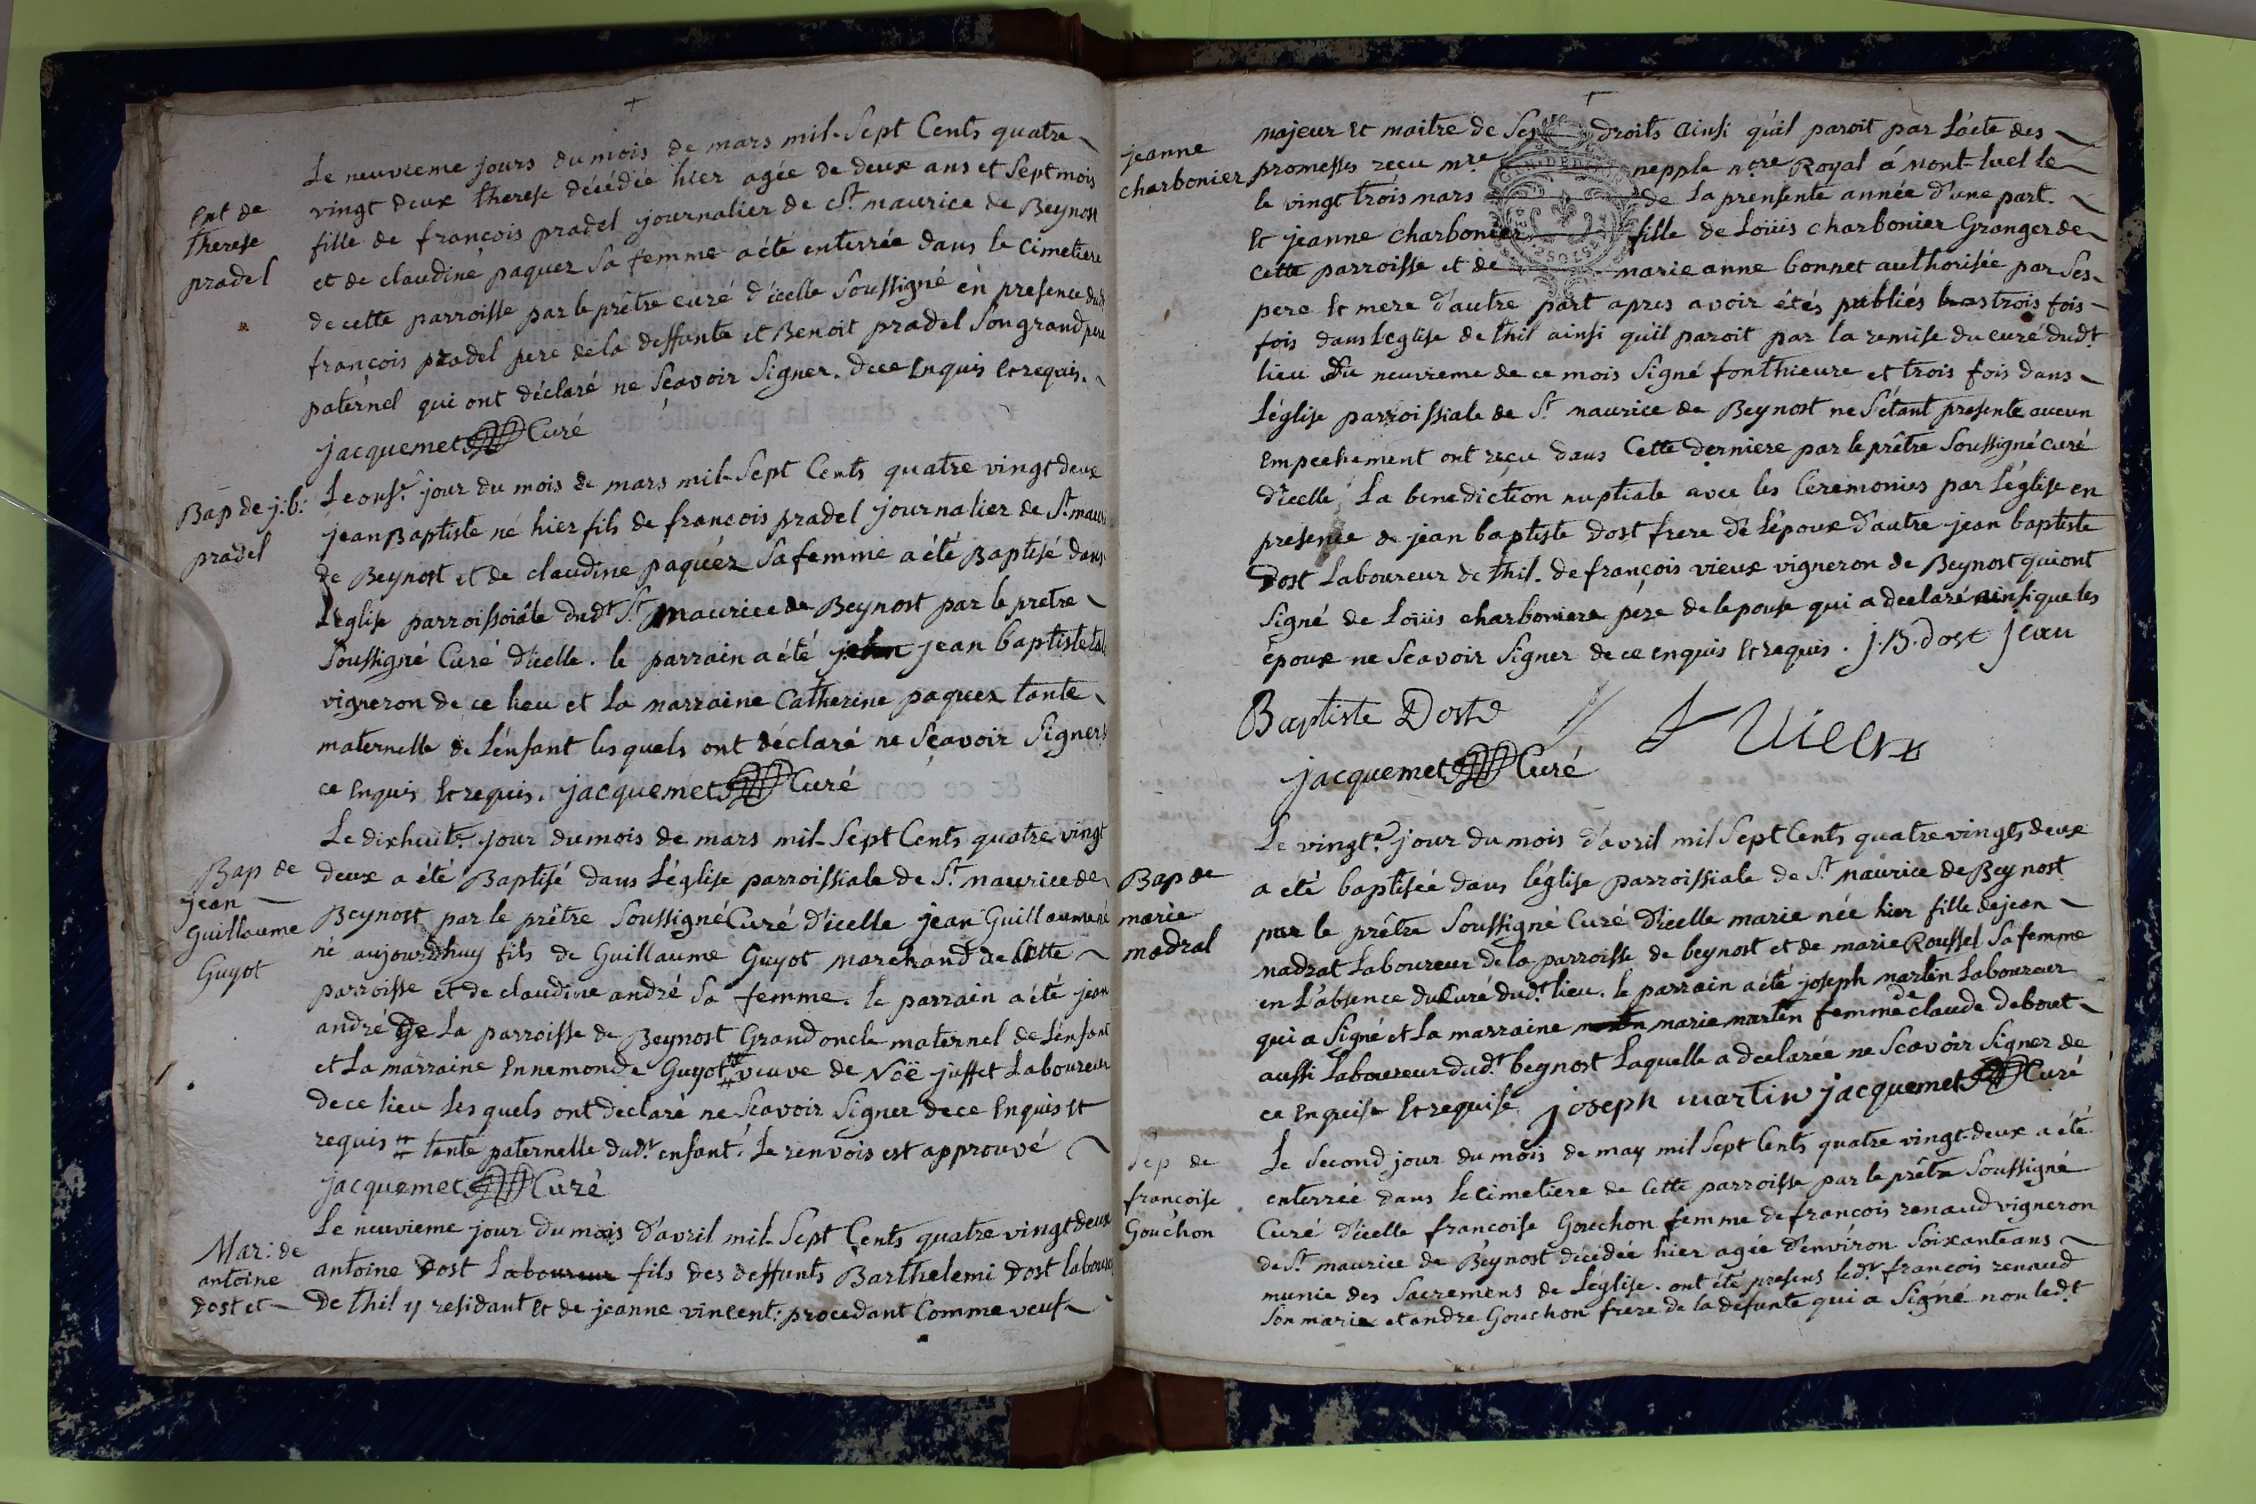 Le neuvieme jours du mois de mars mil Sept Cents quatre
Ent de
Therese
pradel
vingt deux therese décédée hier agée de deux ans et Sept mois
fille de françois pradel journalier de St maurice de Beynost
et de claudine paquez Sa femme a été enterrée dans le Cimetiere
de cette parroisse par le prêtre curé d'icelle Soussigné en presence dudt
françois pradel pere de la deffunte et Benoit pradel Son grand pere
paternel qui ont déclaré ne Sçavoir Signer. de ce Enquis Et requis.
jacquemet Curé
Bap de j. b.
pradel
Le onse. jour du mois de mars mil Sept Cents quatre vingt deux
jean Baptiste né hier fils de francois pradel journalier de St mauri
de Beynost et de claudine paquéz Sa femme a été Baptisé dans
L'eglise parroissiále dudt St maurice de Beynost par le pretre
Soussigné Curé d'icelle. le parrain a été jean jean baptiste
vigneron de ce lieu et La marraine Catherine paquez tante
maternelle de L'énfant lesquels ont déclaré ne Sçavoir Signer
ce Enquis Et requis. jacquemet Curé
Bap de
jean
Guillaume
Guyot
Le dixhuite. jour du mois de mars mil Sept Cents quatre vingt
deux a été Baptisé dans L'église parroissiale de St maurice de
Beynost par le prêtre Soussigné Curé d'icelle jean Guillaume né
né aujourdhuy fils de Guillaume Guyot marchand de Cette
parroisse et de claudine andré Sa femme. le parrain a été jean
andré De La parroisse de Beynost Grand oncle maternel de L'énfant
et La marraine Ennemonde Guyot # veuve de Noë juffet Laboureur
de ce lieu Lesquels ont declaré ne Scavoir Signer de ce Enquis Et
requis # tante paternelle dudt. enfant. Le renvois est approuvé
jacquemet Curé
Mar: de
antoine
dost et
Le neuvieme jour du mois d'avril mil Sept Cents quatre vingt deux
antoine Dost Laboureur fils des deffunts Barthelemi Dost labour
De thil y residant Et de jeanne vincent. procedant Comme veuf
jeanne
charbonier
majeur Et maitre de Ses droits ainsi qu'il paroit par L'acte des
promesses recu mre nepple nre Royal á Mont-luel le
le vingt trois mars de La prensente année d'une part.
Et jeanne charbonier fille de Loüis charbonier Granger de
Cette parroisse et de marie anne bonnet authorisée par Ses
pere Et mere d'autre part apres avoir étés publiés trois fois
fois dans L'eglise de thil ainsi qu'il paroit par la remise du curé dudt.
lieu Du neuvieme de ce mois Signé fonthieure et trois fois dans
L'église parroissiale de St maurice de Beynost ne S'étant presente aucun
Empechement ont reçu dans Cette derniere par le prêtre Soussigné curé
d'icelle La benediction nuptiale avec les Ceremonies par L'église en
presence de jean baptiste dost frere de L'époux d'autre jean baptiste
Dost Laboureur de thil. de françois vieux vigneron de Beynost qui ont
Signé de Loüis charboniere pére de l'epouse qui a declaré ainsi que les
époux ne Scavoir Signer de ce enquis Et requis. J. B. dost jean
Baptiste Dost f Vieux
jacquemet Curé
Bap de
marie
madral
Le vingt.e jour du mois d'avril mil Sept Cents quatre vingts deux
a été baptisée dans l'église parroissiale de St maurice de Beynost
par le prêtre Soussigné Curé d'icelle marie née hier fille de jean
madrat Laboureur de la parroisse de beynost et de marie Roussel Sa femme
en L'absence du Curé dudt. lieu. le parrain a été joseph martin Laboureur
qui a Signé et La marraine marie martin femme de claude debout
aussi Laboureur dudt. beynost Laquelle a declarée ne Scavoir Signer de
ce Enquise Et requise. joseph martin jacquemet Curé
Sep de
françoise
Gouchon
Le Second jour du mois de may mil Sept Cents quatre vingt-deux a été
enterrée dans le Cimetiere de Cette parroisse par le prêtre Soussigné
Curé d'icelle francoise Gouchon femme de francois renaud vigneron
de St maurice de Beynost décédée hier agée d'environ Soixante ans
munie des Sacremens de L'eglise. ont été presens ledt. françois renaud
Son marie et andre Gouchon frere de la défunte qui a Signé non ledt.